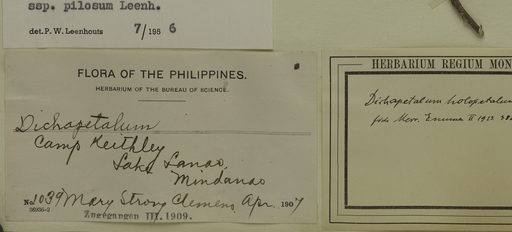 ssp. pilosum Leenh.
det. P. W. Leenhouts 7/1986
FLORA OF THE PHILIPPINES.
HERBARIUM OF THE BUREAU OF SCIENCE.
Dichapetalum
Camp Keithley
Lake Lanao,
Mindanao
No. 1039 Mary Strong Clemens, Apr. 1907
Zugegangen III. 1909.
HERBARIUM REGIUM MON
Dichapetalum holopetalum
fide Merr. Enum. II 1923